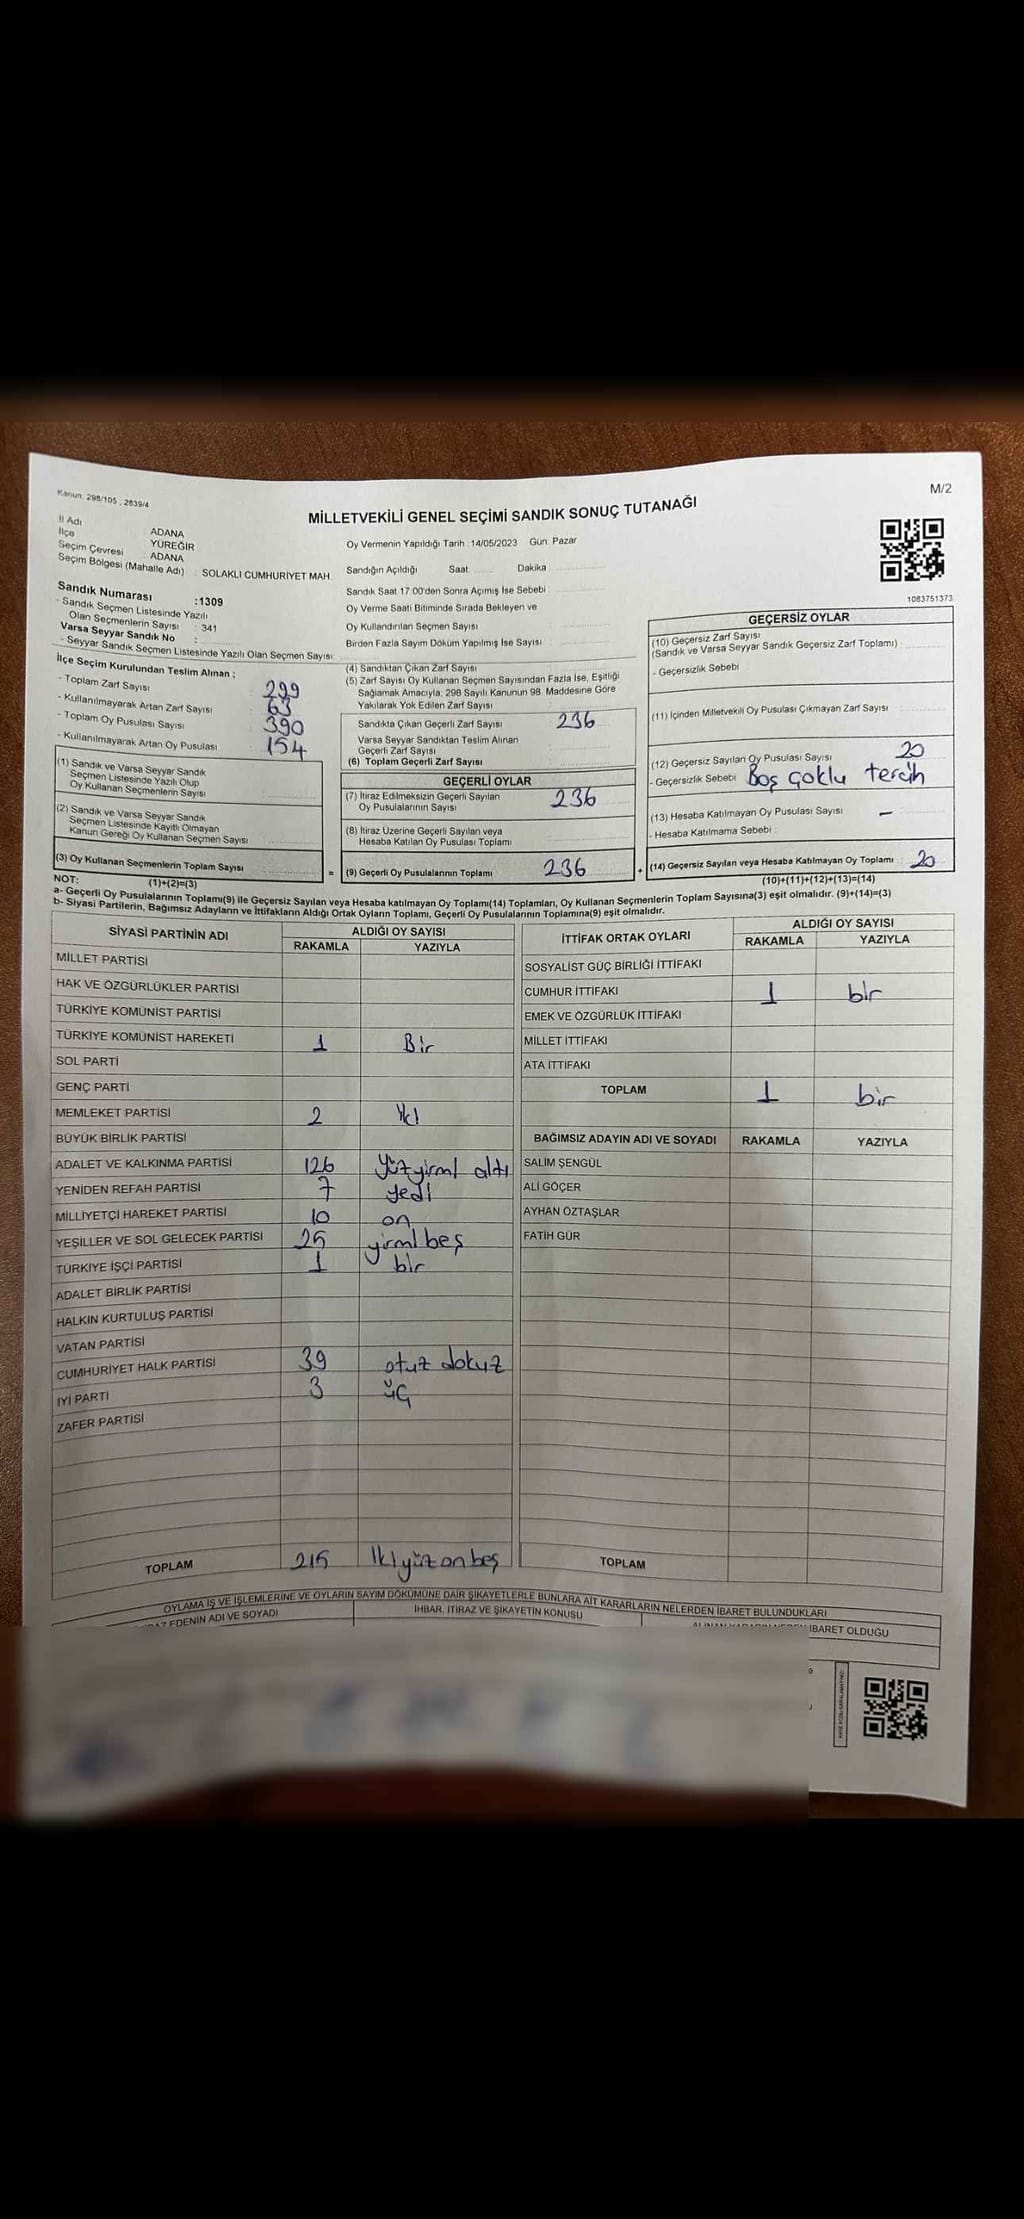 Kanun: 298/105 , 2839/4
M/2
MİLLETVEKİLİ GENEL SEÇİMİ SANDIK SONUÇ TUTANAĞI
İl Adı ADANA
İlçe YÜREĞİR
Seçim Çevresi : ADANA
Seçim Bölgesi (Mahalle Adı) : SOLAKLI CUMHURİYET MAH.
Sandık Numarası :1309
- Sandık Seçmen Listesinde Yazılı
Olan Seçmenlerin Sayısı : 341
Varsa Seyyar Sandık No :
- Seyyar Sandık Seçmen Listesinde Yazılı Olan Seçmen Sayısı:
Oy Vermenin Yapıldığı Tarih : 14/05/2023 Gün: Pazar
Sandığın Açıldığı Saat: Dakika :
Sandık Saat 17:00'den Sonra Açımış İse Sebebi :
Oy Verme Saati Bitiminde Sırada Bekleyen ve
Oy Kullandırılan Seçmen Sayısı
Birden Fazla Sayım Döküm Yapılmış İse Sayısı
1083751373
İlçe Seçim Kurulundan Teslim Alınan ;
- Toplam Zarf Sayısı 299
- Kullanılmayarak Artan Zarf Sayısı 63
- Toplam Oy Pusulası Sayısı 390
- Kullanılmayarak Artan Oy Pusulası 154
(1) Sandık ve Varsa Seyyar Sandık
Seçmen Listesinde Yazılı Olup
Oy Kullanan Seçmenlerin Sayısı
(2) Sandık ve Varsa Seyyar Sandık
Seçmen Listesinde Kayıtlı Olmayan
Kanun Gereği Oy Kullanan Seçmen Sayısı
(3) Oy Kullanan Seçmenlerin Toplam Sayısı
(1)+(2)=(3)
(4) Sandıktan Çıkan Zarf Sayısı
(5) Zarf Sayısı Oy Kullanan Seçmen Sayısından Fazla İse, Eşitliği
Sağlamak Amacıyla; 298 Sayılı Kanunun 98. Maddesine Göre
Yakılarak Yok Edilen Zarf Sayısı
Sandıkta Çıkan Geçerli Zarf Sayısı 236
Varsa Seyyar Sandıktan Teslim Alınan
Geçerli Zarf Sayısı
(6) Toplam Geçerli Zarf Sayısı
GEÇERLİ OYLAR
(7) İtiraz Edilmeksizin Geçerli Sayılan
Oy Pusulalarının Sayısı 236
(8) İtiraz Üzerine Geçerli Sayılan veya
Hesaba Katılan Oy Pusulası Toplamı
= (9) Geçerli Oy Pusulalarının Toplamı 236 +
GEÇERSİZ OYLAR
(10) Geçersiz Zarf Sayısı
(Sandık ve Varsa Seyyar Sandık Geçersiz Zarf Toplamı)
- Geçersizlik Sebebi
(11) İçinden Milletvekili Oy Pusulası Çıkmayan Zarf Sayısı
(12) Geçersiz Sayılan Oy Pusulası Sayısı 20
- Geçersizlik Sebebi Boş çoklu tercih
(13) Hesaba Katılmayan Oy Pusulası Sayısı -
- Hesaba Katılmama Sebebi :
(14) Geçersiz Sayılan veya Hesaba Katılmayan Oy Toplamı 20
(10)+(11)+(12)+(13)=(14)
NOT:
a- Geçerli Oy Pusulalarının Toplamı(9) ile Geçersiz Sayılan veya Hesaba katılmayan Oy Toplamı(14) Toplamları, Oy Kullanan Seçmenlerin Toplam Sayısına(3) eşit olmalıdır. (9)+(14)=(3)
b- Siyasi Partilerin, Bağımsız Adayların ve İttifakların Aldığı Ortak Oyların Toplamı, Geçerli Oy Pusulalarının Toplamına(9) eşit olmalıdır.
SİYASİ PARTİNİN ADI ALDIĞI OY SAYISI
RAKAMLA YAZIYLA
MİLLET PARTİSİ
HAK VE ÖZGÜRLÜKLER PARTİSİ
TÜRKİYE KOMÜNİST PARTİSİ
TÜRKİYE KOMÜNİST HAREKETİ 1 Bir
SOL PARTİ
GENÇ PARTİ
MEMLEKET PARTİSİ 2 iki
BÜYÜK BİRLİK PARTİSİ
ADALET VE KALKINMA PARTİSİ 126 Yüzyirmi altı
YENİDEN REFAH PARTİSİ 7 yedi
MİLLİYETÇİ HAREKET PARTİSİ 10 on
YEŞİLLER VE SOL GELECEK PARTİSİ 25 yirmi beş
TÜRKİYE İŞÇİ PARTİSİ 1 bir
ADALET BİRLİK PARTİSİ
HALKIN KURTULUŞ PARTİSİ
VATAN PARTİSİ
CUMHURİYET HALK PARTİSİ 39 otuz dokuz
İYİ PARTİ 3 üç
ZAFER PARTİSİ
TOPLAM 215 İkiyüz on beş
İTTİFAK ORTAK OYLARI ALDIĞI OY SAYISI
RAKAMLA YAZIYLA
SOSYALİST GÜÇ BİRLİĞİ İTTİFAKI
CUMHUR İTTİFAKI 1 bir
EMEK VE ÖZGÜRLÜK İTTİFAKI
MİLLET İTTİFAKI
ATA İTTİFAKI
TOPLAM 1 bir
BAĞIMSIZ ADAYIN ADI VE SOYADI RAKAMLA YAZIYLA
SALİM ŞENGÜL
ALİ GÖÇER
AYHAN ÖZTAŞLAR
FATİH GÜR
TOPLAM
OYLAMA İŞ VE İŞLEMLERİNE VE OYLARIN SAYIM DÖKÜMÜNE DAİR ŞİKAYETLERLE BUNLARA AİT KARARLARIN NELERDEN İBARET BULUNDUKLARI
EDENİN ADI VE SOYADI İHBAR, İTİRAZ VE ŞİKAYETİN KONUSU İBARET OLDUĞU